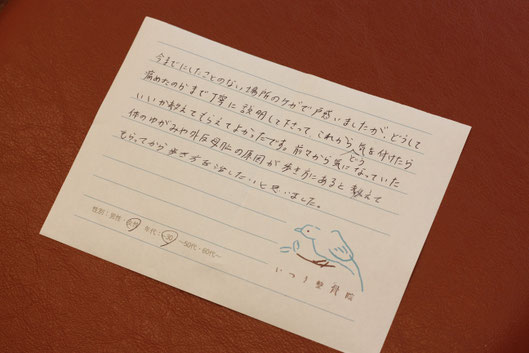 今までにしたことのない場所のケガで戸惑いましたが、どうして
痛めたのかまで丁寧に説明して下さって、これからどう気を付けたら
いいか教えてもらえてよかったです。前々から気になっていた
体のゆがみや外反母趾の原因が歩き方にあると教えて
もらってから歩き方を治したいと思いました。
性別：男性・女性 年代：~30 ~50代・60代~
いつき整骨院